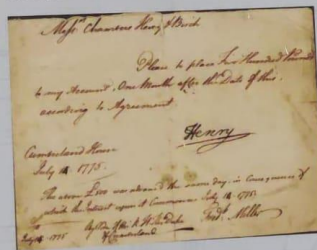 Mess.rs Chambers Henry & Birch
Please to place Two Hundred Pounds
to my Account One Month after the Date of this
according to Agreement
Henry
Cumberland House
July 14. 1775.
The above £200 was advanced the same day, in Consequence of
which the Interest upon it Commences July 14. 1775.
July 14. 1775
of H. R. H. the Duke
of Cumberland